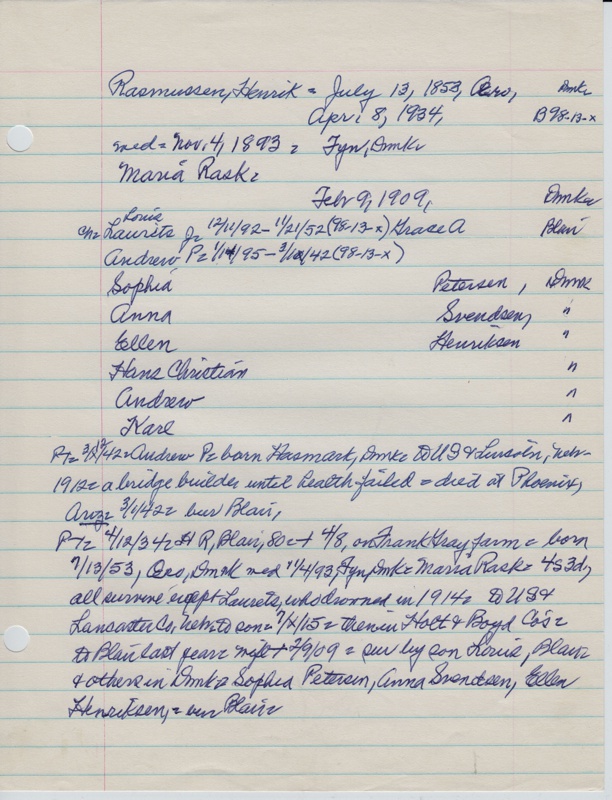 Rasmussen, Henrik = July 13, 1853, Aero, Dmk
Apr. 8, 1934, B98-13-x
med = Nov. 4, 1893 = Fyn, Dmk
Maria Rask =
Feb 9, 1909, Dmk
Louis
ch = Laurits J = 12/11/92 - 11/21/52 (98-13-x) Grase A Blair
Andrew P = 1/ /95 - 3/ /42 (98-13-x)
Sophia Petersen, Dmk
Anna Svendsen, "
Ellen Henriksen "
Hans Christian "
Andrew "
Karl "
PT = 3/12/42 = Andrew P = born Hasmark, Dmk = to US & Lincoln, Nebr-
1912 = a bridge builder until health failed = died at Phoenix,
Ariz = 3/1/42 = bur Blair,
PT = 4/12/34 = R, Blair, 80 = + 4/8, on Frank Gray farm = born
7/13/53, Aero, Dmk med 11/4/93, Fyn, Dmk = Maria Rask = 4S3d,
all survive except Laurits, who drowned in 1914 = to US &
Lancaster Co, Nebr to son = = then in Holt & Boyd Co's =
to Blair last year = wife + 2/9/09 = sur by son Louis, Blair
& others in Dmk = Sophia Petersen, Anna Svendsen, Ellen
Henriksen, = bur Blair =